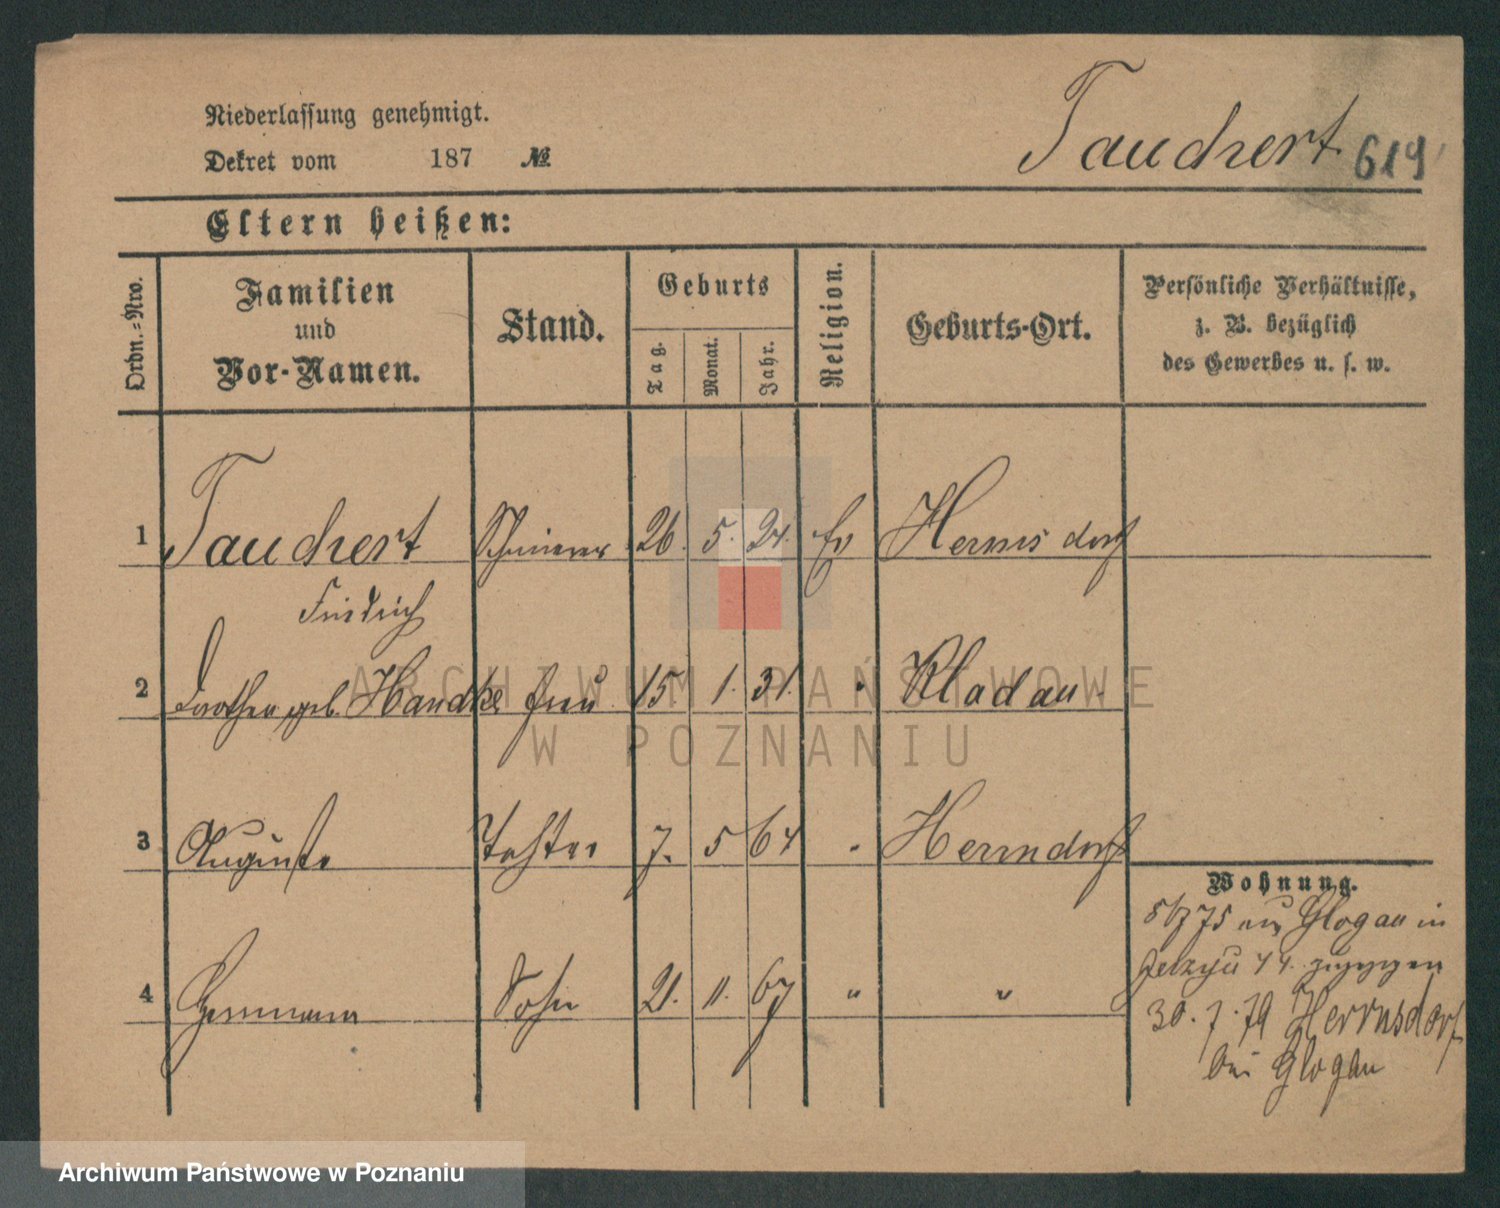 Niederlassung genehmigt.
Dekret vom 187 №
Tauchert 619
Eltern heißen:
Ordn.-Nro.
Familien
und
Vor-Namen.
Stand.
Geburts
Tag.
Monat.
Jahr.
Religion.
Geburts-Ort.
Persönliche Verhältnisse,
z. B. bezüglich
des Gewerbes u. s. w.
1 Tauchert 26. 5. 24. Ev Herrnsdorf
Friedrich
2 Dorothea geb. Handke Frau 15. 1. 31. " Kladau
3 Auguste Tochter 7. 5 64 " Herrndorf
4 Hermann Sohn 21. 11. 67 " "
Wohnung.
5/7 75 aus Glogau in
44. zugezogen
30. 7. 79 Herrnsdorf
bei Glogau
ARCHIWUM PAŃSTWOWE
W POZNANIU
Archiwum Państwowe w Poznaniu